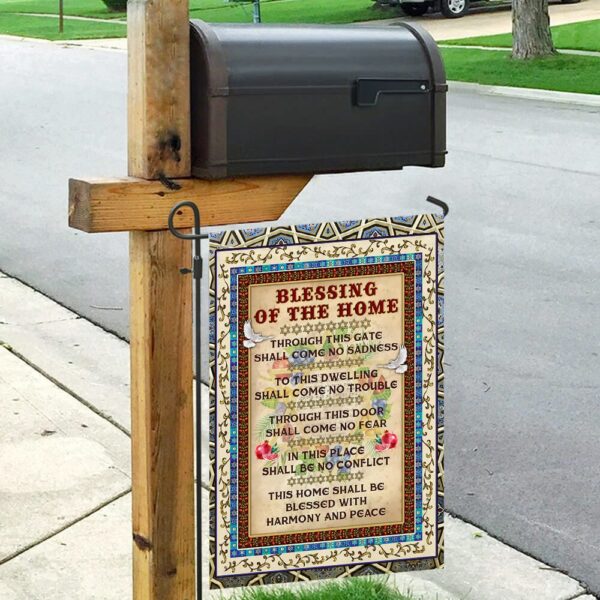 BLESSING
OF THE HOME
THROUGH THIS GATE
SHALL COME NO SADNESS
TO THIS DWELLING
SHALL COME NO TROUBLE
THROUGH THIS DOOR
SHALL COME NO FEAR
IN THIS PLACE
SHALL BE NO CONFLICT
THIS HOME SHALL BE
BLESSED WITH
HARMONY AND PEACE